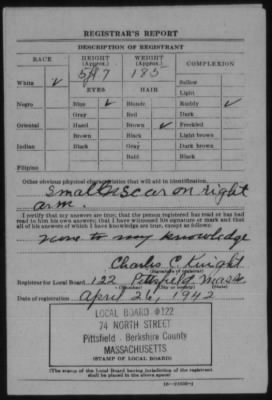 REGISTRAR'S REPORT
DESCRIPTION OF REGISTRANT
RACE HEIGHT (Approx.) WEIGHT (Approx.) COMPLEXION
White ✓ 5'7 185 Sallow
EYES HAIR Light
Negro Blue ✓ Blonde Ruddy ✓
Gray Red Dark
Oriental Hazel Brown ✓ Freckled
Brown Black Light brown
Indian Black Gray Dark brown
Bald Black
Filipino
Other obvious physical characteristics that will aid in identification
Small scar on right
arm.
I certify that my answers are true; that the person registered has read or has had
read to him his own answers; that I have witnessed his signature or mark and that
all of his answers of which I have knowledge are true, except as follows:
none to my knowledge
Charles C. Knight
(Signature of registrar)
Registrar for Local Board 122 Pittsfield Mass
(Number) (City or county) (State)
Date of registration April 26, 1942
LOCAL BOARD #122
74 NORTH STREET
Pittsfield - Berkshire County
MASSACHUSETTS
(STAMP OF LOCAL BOARD)
(The stamp of the Local Board having jurisdiction of the registrant
shall be placed in the above space.)